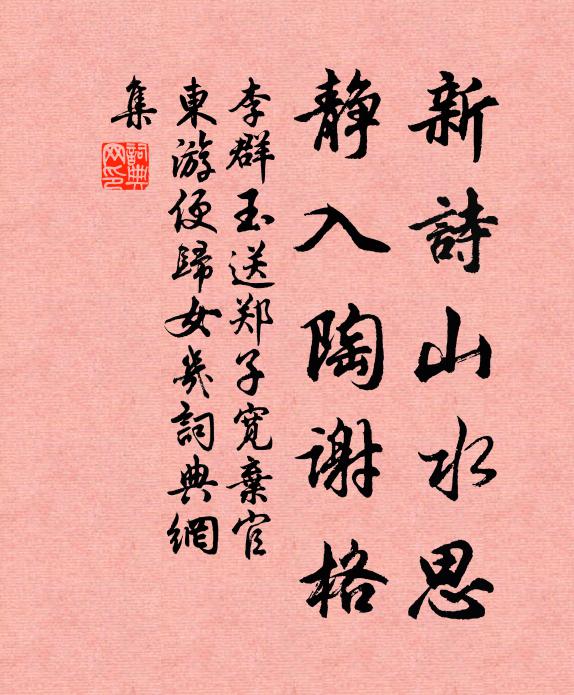 新詩山水思
静入陶谢格
李群玉送郑子宽棄官
東游便歸女几詞典網
集
詞典
网印